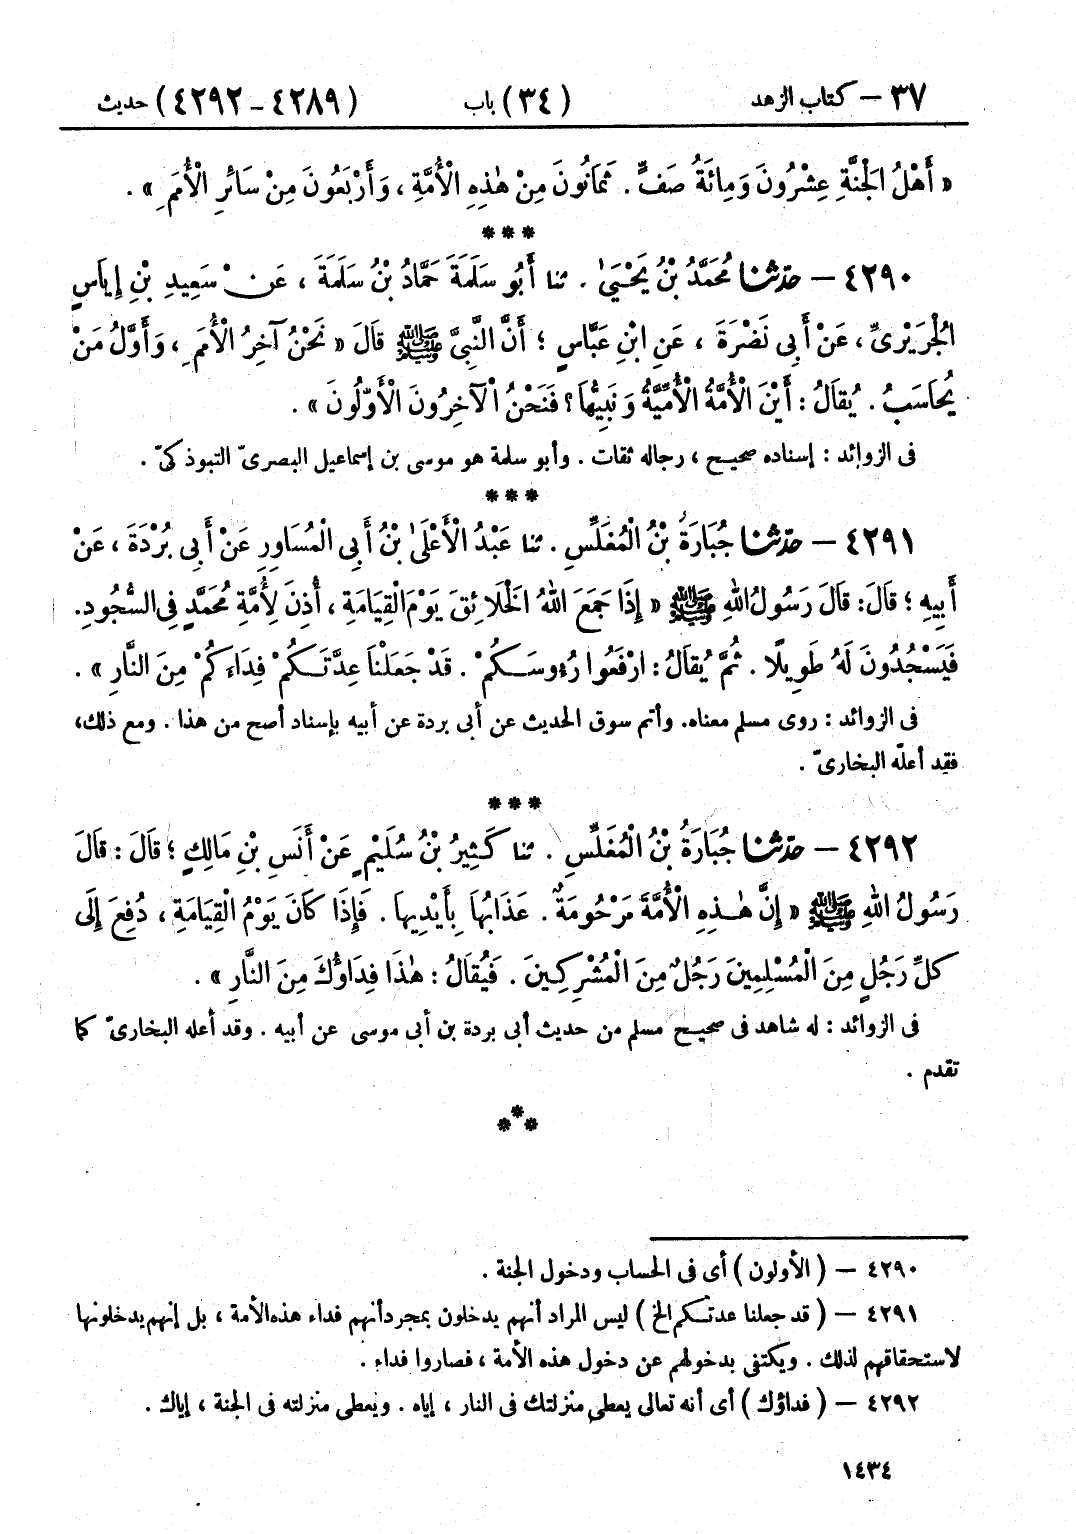 ٣٧ – كتاب الزهد (٣٤) باب (٤٢٨٩ – ٤٢٩٢) حديث
« أَهْلُ الْجَنَّةِ عِشْرُونَ وَمِائَةُ صَفٍّ . ثَمَانُونَ مِنْ هٰذِهِ الْأُمَّةِ ، وَأَرْبَعُونَ مِنْ سَائِرِ الْأُمَمِ » .
***
٤٢٩٠ – حدّثنا مُحَمَّدُ بْنُ يَحْيَىٰ . ثنا أَبُو سَلَمَةَ حَمَّادُ بْنُ سَلَمَةَ ، عَنْ سَعِيدِ بْنِ إِيَاسٍ
الْجُرَيْرِيِّ ، عَنْ أَبِى نَضْرَةَ ، عَنِ ابْنِ عَبَّاسٍ ؛ أَنَّ النَّبِيَّ ﷺ قَالَ « نَحْنُ آخِرُ الْأُمَمِ ، وَأَوَّلُ مَنْ
يُحَاسَبُ . يُقَالُ : أَيْنَ الْأُمَّةُ الْأُمِّيَّةُ وَنَبِيُّهَا ؟ فَنَحْنُ الْآخِرُونَ الْأَوَّلُونَ » .
فى الزوائد : إسناده صحيح ، رجاله ثقات . وأبو سلمة هو موسى بن إسماعيل البصرىّ التبوذكىّ .
***
٤٢٩١ – حدّثنا جُبَارَةُ بْنُ الْمُغَلِّسِ . ثنا عَبْدُ الْأَعْلَىٰ بْنُ أَبِى الْمُسَاوِرِ عَنْ أَبِى بُرْدَةَ ، عَنْ
أَبِيهِ ؛ قَالَ : قَالَ رَسُولُ اللهِ ﷺ « إِذَا جَمَعَ اللهُ الْخَلَائِقَ يَوْمَ الْقِيَامَةِ ، أُذِنَ لِأُمَّةِ مُحَمَّدٍ فِى السُّجُودِ .
فَيَسْجُدُونَ لَهُ طَوِيلًا . ثُمَّ يُقَالُ : ارْفَعُوا رُءُوسَكُمْ . قَدْ جَعَلْنَا عِدَّتَكُمْ فِدَاءَكُمْ مِنَ النَّارِ » .
فى الزوائد : روى مسلم معناه. وأتم سوق الحديث عن أبى بردة عن أبيه بإسناد أصح من هذا . ومع ذلك،
فقد أعلّه البخارىّ .
***
٤٢٩٢ – حدّثنا جُبَارَةُ بْنُ الْمُغَلِّسِ . ثنا كَثِيرُ بْنُ سُلَيْمٍ عَنْ أَنَسِ بْنِ مَالِكٍ ؛ قَالَ : قَالَ
رَسُولُ اللهِ ﷺ « إِنَّ هٰذِهِ الْأُمَّةَ مَرْحُومَةٌ . عَذَابُهَا بِأَيْدِيهَا . فَإِذَا كَانَ يَوْمُ الْقِيَامَةِ ، دُفِعَ إِلَى
كلِّ رَجُلٍ مِنَ الْمُسْلِمِينَ رَجُلٌ مِنَ الْمُشْرِكِينَ . فَيُقَالُ : هٰذَا فِدَاؤُكَ مِنَ النَّارِ » .
فى الزوائد : له شاهد فى صحيح مسلم من حديث أبى بردة بن أبى موسى عن أبيه . وقد أعله البخارىّ كما
تقدم .
***
٤٢٩٠ – ( الأولون ) أى فى الحساب ودخول الجنة .
٤٢٩١ – ( قد جعلنا عدتكم الخ ) ليس المراد أنهم يدخلون بمجرد أنهم فداء هذه الأمة ، بل إنهم يدخلونها
لاستحقاقهم لذلك . ويكتفى بدخولهم عن دخول هذه الأمة ، فصاروا فداء .
٤٢٩٢ – ( فداؤك ) أى أنه تعالى يعطى منزلتك فى النار ، إياه . ويعطى منزلته فى الجنة ، إياك .
١٤٣٤